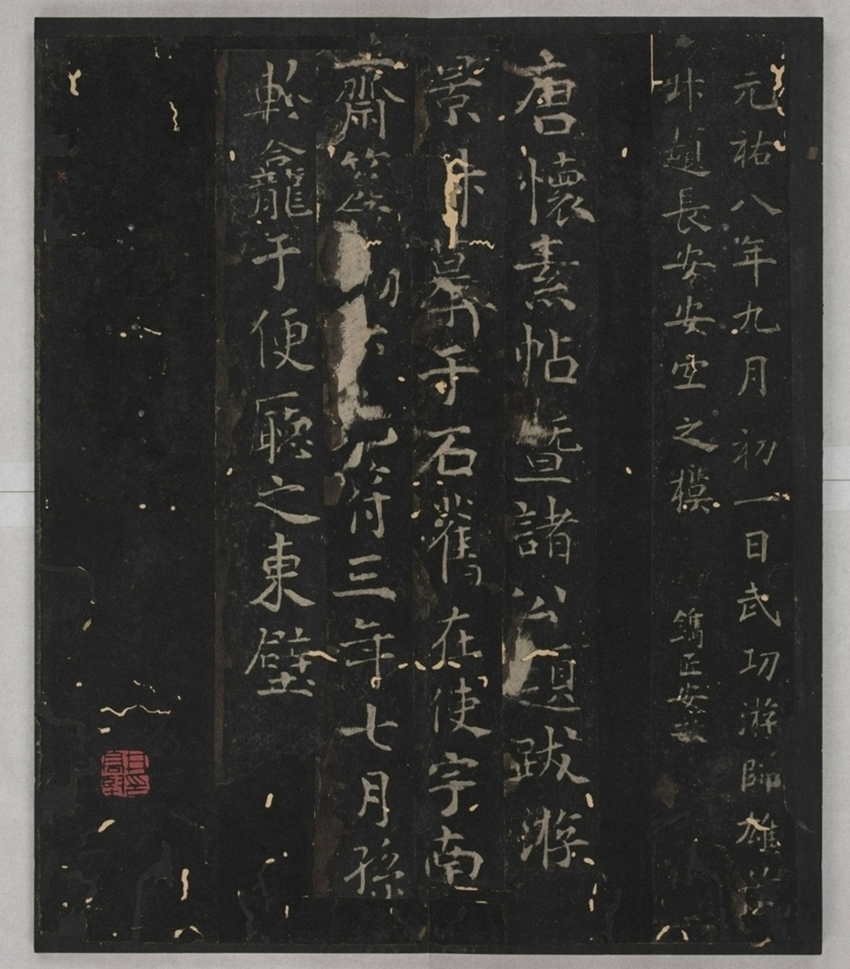 元祐八年九月初一日武功游師雄
叔題長安安宜之模　鐫匠安
唐懷素帖暨諸公題跋游
景叔摹于石舊在使宇南
齋　切　元符三年七月孫
軫龕于便廳之東壁